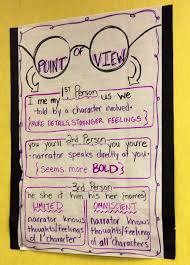 POINT OF VIEW
1st Person
I me my us we
told by a character involved
{MORE DETAILS, STRONGER FEELINGS}
2nd Person
you you'll you you're
narrator speaks directly at you
{Seems more BOLD}
3rd Person
he she it him his her (names)
LIMITED
narrator knows
thoughts/feelings
of 1 character
OMNISCIENT
narrator knows
thoughts/feelings
of all characters